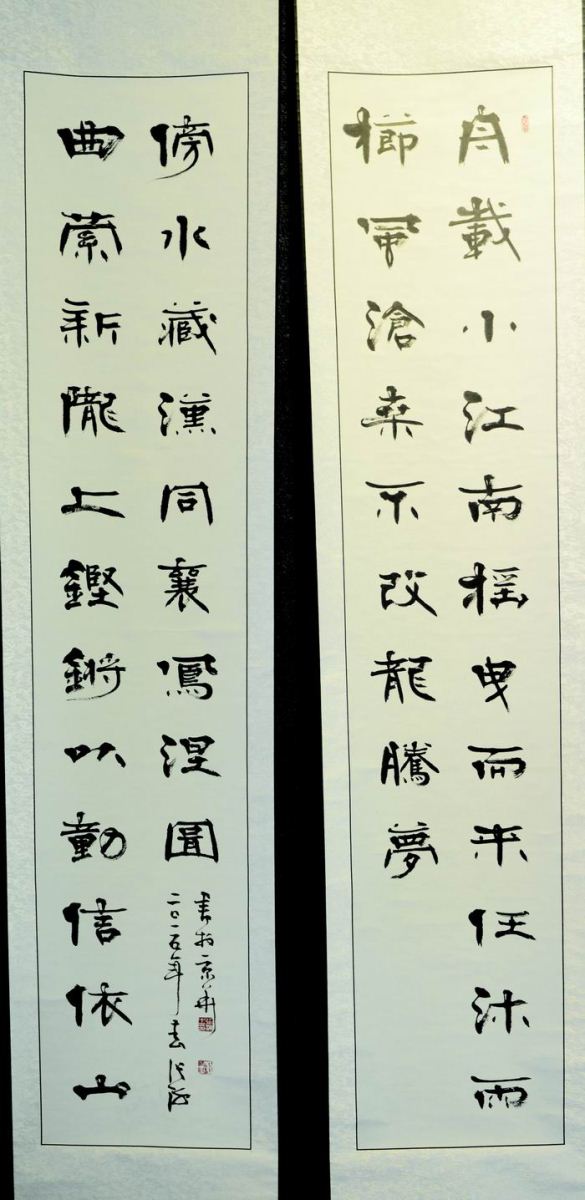 舟載小江南摇曳而来任沐雨
櫛風滄桑不改龍騰夢
曲萦新隴上鏗鏘以動信依山
傍水藏漢同襄鳳涅圖
書於京華
二〇一五年春